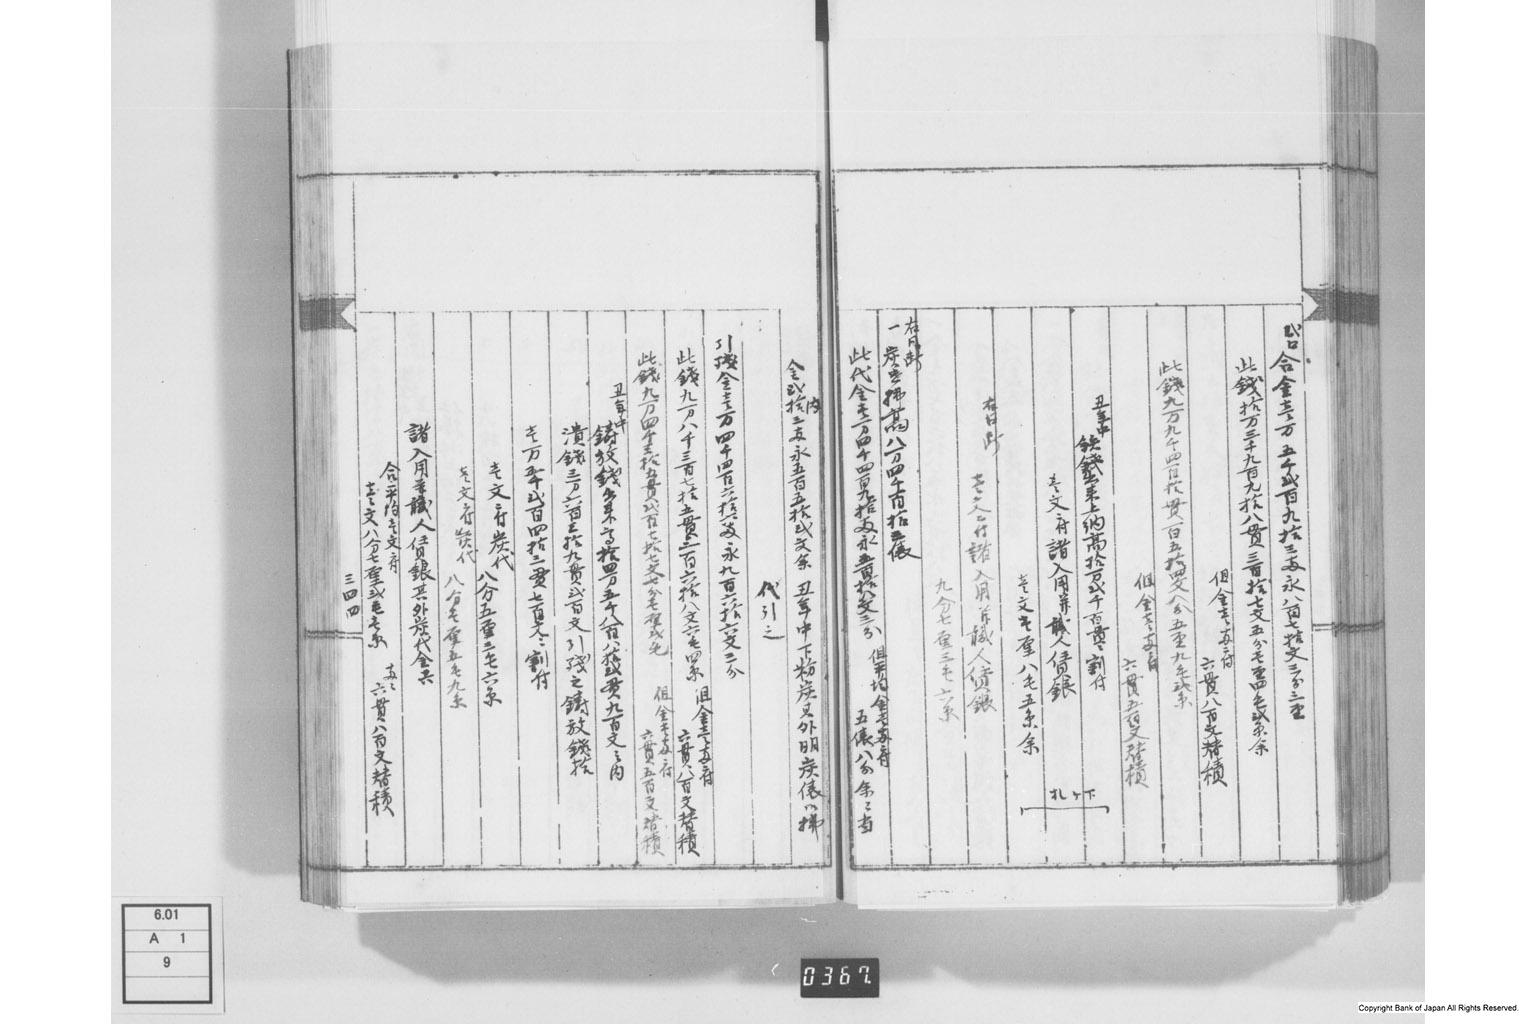 合金壱万五千弐百九拾三両永八百七拾文三分三厘
此銭拾万三千九百九拾八貫三百拾七文五分壱厘四毛弐糸余
但金壱両ニ付
六貫八百文替積
此銭九万九千四百拾貫百五拾四文八分五厘九毛弐糸
但金壱両ニ付
六貫五百文替積
丑年中
鉄銭出来上納高拾万弐千百貫文割付
壱文ニ付諸入用并職人賃銀
壱文壱厘八毛五糸余
札ケ下
右同断
壱文ニ付諸入用并職人賃銀
九分七厘三毛六糸
右同断
一炭払高八万四千百拾五俵
此代金壱万四千四百九拾両永五百拾八文三分
但平均金壱両ニ付
五俵八分余ニ当
内
金弐拾三両永五百五拾弐文余
丑年中下粉炭其外明炭俵御払
代引之
引残金壱万四千四百六拾六両永九百六拾六文三分
此銭九万八千三百七拾五貫三百六拾八文六毛四糸
但金壱両ニ付
六貫八百文替積
此銭九万四千三拾五貫弐百七拾七文七分壱厘弐毛
但金壱両ニ付
六貫五百文替積
丑年中
鋳放銭出来高拾四万五千八百八拾弐貫九百文之内
潰銭三万六百三拾九貫弐百文引残之鋳放銭拾
壱万五千弐百四拾三貫七百文ニ割付
壱文ニ付炭代
八分五厘三毛六糸
壱文ニ付炭代
八分壱厘五毛九糸
諸入用并職人賃銀其外炭代金共
合平均壱文ニ付
壱文八分七厘弐毛壱糸
両ニ
六貫八百文替積
三四四
6.01
A 1
9
0367
Copyright Bank of Japan All Rights Reserved.